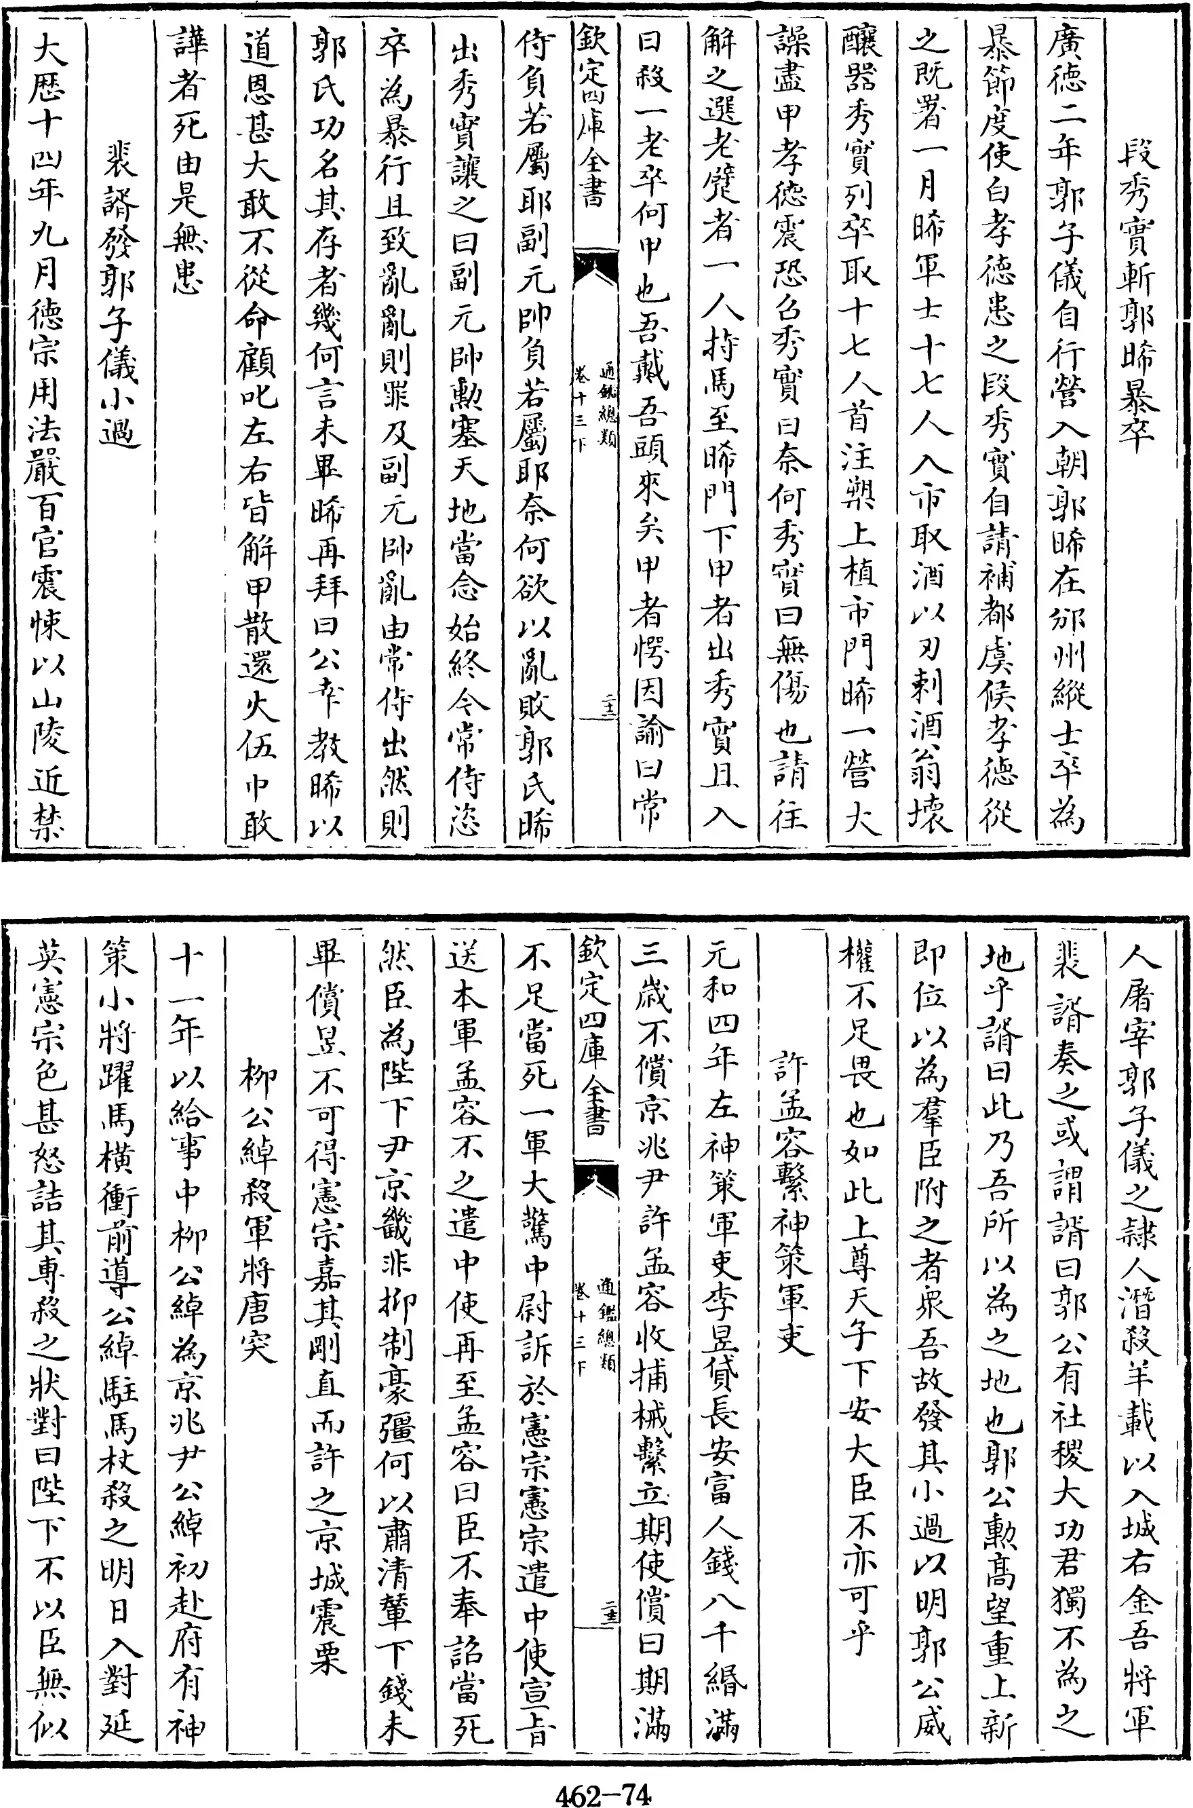 段秀實斬郭晞暴卒
廣徳二年郭子儀自行營入朝郭晞在邠州縱士卒為
暴節度使白孝徳患之段秀實自請補都虞候孝徳從
之既署一月晞軍士十七人入市取酒以刃刺酒翁壞
釀器秀實列卒取十七人首注槊上植市門晞一營大
譟盡甲孝徳震恐召秀實曰奈何秀實曰無傷也請往
解之選老躄者一人持馬至晞門下甲者出秀實且入
曰殺一老卒何甲也吾戴吾頭來矣甲者愕因諭曰常
欽定四庫全書
通鑑總類
卷十三下
二十二
侍負若屬耶副元帥負若屬耶奈何欲以亂敗郭氏晞
出秀實讓之曰副元帥勲塞天地當念始終今常侍恣
卒為暴行且致亂亂則罪及副元帥亂由常侍出然則
郭氏功名其存者幾何言未畢晞再拜曰公幸教晞以
道恩甚大敢不從命顧叱左右皆解甲散還火伍中敢
譁者死由是無患
裴諝發郭子儀小過
大厯十四年九月徳宗用法嚴百官震悚以山陵近禁
人屠宰郭子儀之隷人潛殺羊載以入城右金吾將軍
裴諝奏之或謂諝曰郭公有社稷大功君獨不為之
地乎諝曰此乃吾所以為之地也郭公勲髙望重上新
即位以為羣臣附之者衆吾故發其小過以明郭公威
權不足畏也如此上尊天子下安大臣不亦可乎
許孟容繫神策軍吏
元和四年左神策軍吏李昱貸長安富人錢八千緡滿
三歲不償京兆尹許孟容收捕械繫立期使償曰期滿
欽定四庫全書
通鑑總類
卷十三下
二十三
不足當死一軍大驚中尉訴於憲宗憲宗遣中使宣㫖
送本軍孟容不之遣中使再至孟容曰臣不奉詔當死
然臣為陛下尹京畿非抑制豪彊何以肅清輦下錢未
畢償昱不可得憲宗嘉其剛直而許之京城震栗
柳公綽殺軍將唐突
十一年以給事中柳公綽為京兆尹公綽初赴府有神
策小將躍馬橫衝前導公綽駐馬杖殺之明日入對延
英憲宗色甚怒詰其專殺之狀對曰陛下不以臣無似
462-74